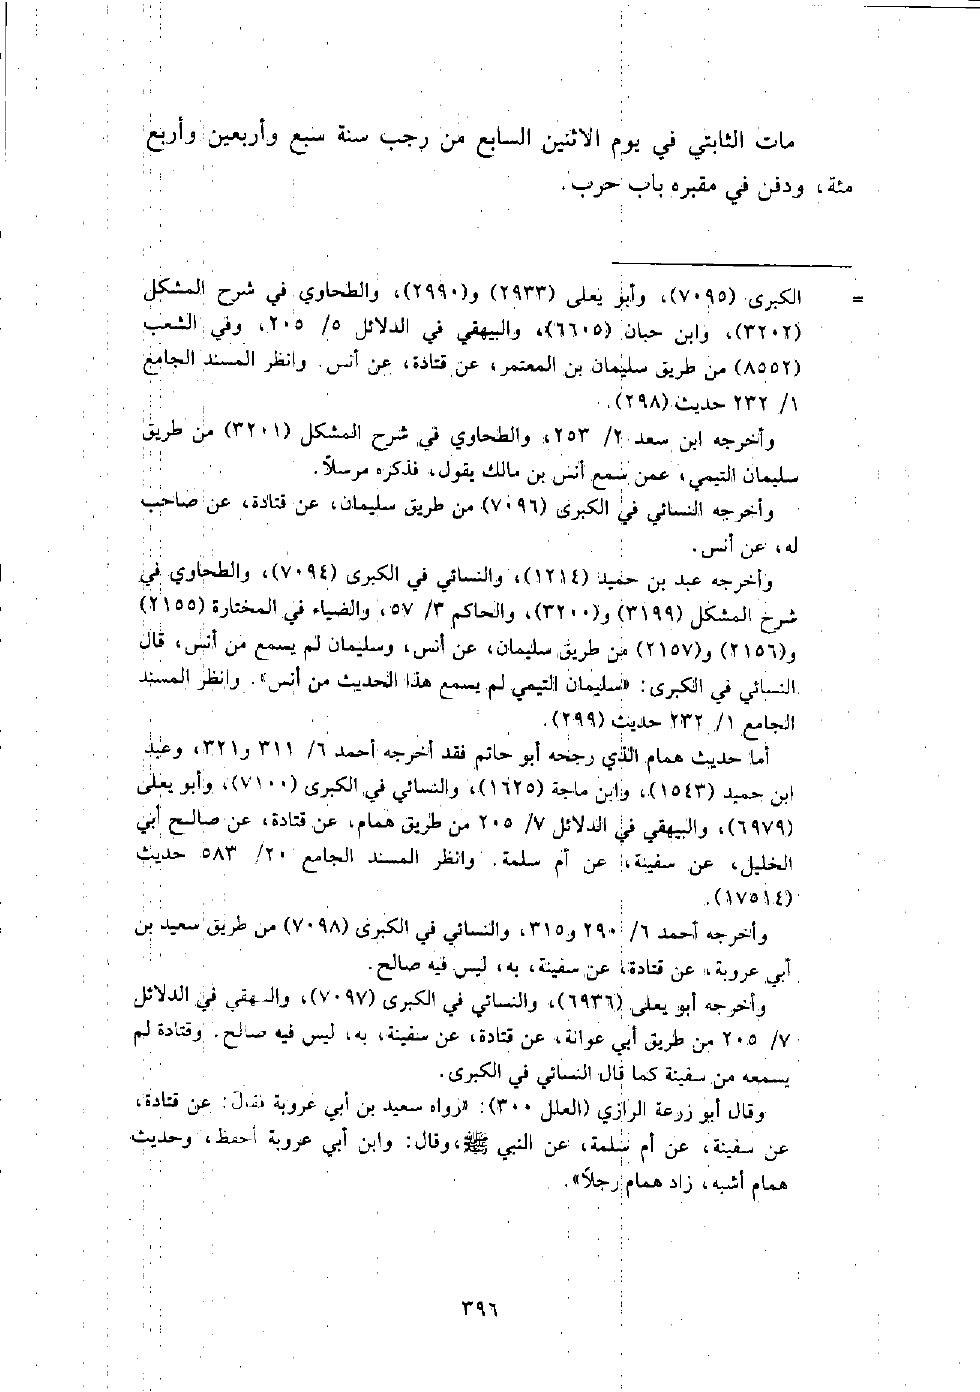 مات الثابتي في يوم الاثنين السابع من رجب سنة سبع وأربعين وأربع
مئة، ودفن في مقبره باب حرب.
= الكبرى (٧٠٩٥)، وأبو يعلى (٢٩٣٣) و(٢٩٩٠)، والطحاوي في شرح المشكل
(٣٢٠٢)، وابن حبان (٦٦٠٥)، والبيهقي في الدلائل ٥/ ٢٠٥، وفي الشعب
(٨٥٥٢) من طريق سليمان بن المعتمر، عن قتادة، عن أنس. وانظر المسند الجامع
١/ ٢٣٢ حديث (٢٩٨).
وأخرجه ابن سعد ٢/ ٢٥٣، والطحاوي في شرح المشكل (٣٢٠١) من طريق
سليمان التيمي، عمن سمع أنس بن مالك يقول، فذكره مرسلاً.
وأخرجه النسائي في الكبرى (٧٠٩٦) من طريق سليمان، عن قتادة، عن صاحب
له، عن أنس.
وأخرجه عبد بن حميد (١٢١٤)، والنسائي في الكبرى (٧٠٩٤)، والطحاوي في
شرح المشكل (٣١٩٩) و(٣٢٠٠)، والحاكم ٣/ ٥٧، والضياء في المختارة (٢١٥٥)
و(٢١٥٦) و(٢١٥٧) من طريق سليمان، عن أنس، وسليمان لم يسمع من أنس، قال
النسائي في الكبرى: «سليمان التيمي لم يسمع هذا الحديث من أنس». وانظر المسند
الجامع ١/ ٢٣٢ حديث (٢٩٩).
أما حديث همام الذي رجحه أبو حاتم فقد أخرجه أحمد ٦/ ٣١١ و٣٢١، وعبد
ابن حميد (١٥٤٣)، وابن ماجة (١٦٢٥)، والنسائي في الكبرى (٧١٠٠)، وأبو يعلى
(٦٩٧٩)، والبيهقي في الدلائل ٧/ ٢٠٥ من طريق همام، عن قتادة، عن صالح أبي
الخليل، عن سفينة، عن أم سلمة. وانظر المسند الجامع ٢٠/ ٥٨٣ حديث
(١٧٥١٤).
وأخرجه أحمد ٦/ ٢٩٠ و٣١٥، والنسائي في الكبرى (٧٠٩٨) من طريق سعيد بن
أبي عروبة، عن قتادة، عن سفينة، به، ليس فيه صالح.
وأخرجه أبو يعلى (٦٩٣٦)، والنسائي في الكبرى (٧٠٩٧)، والبيهقي في الدلائل
٧/ ٢٠٥ من طريق أبي عوانة، عن قتادة، عن سفينة، به، ليس فيه صالح. وقتادة لم
يسمعه من سفينة كما قال النسائي في الكبرى.
وقال أبو زرعة الرازي (العلل ٣٠٠): «رواه سعيد بن أبي عروبة فقال: عن قتادة،
عن سفينة، عن أم سلمة، عن النبي ﷺ، وقال: وابن أبي عروبة أحفظ، وحديث
همام أشبه، زاد همام رجلاً».
٣٩٦